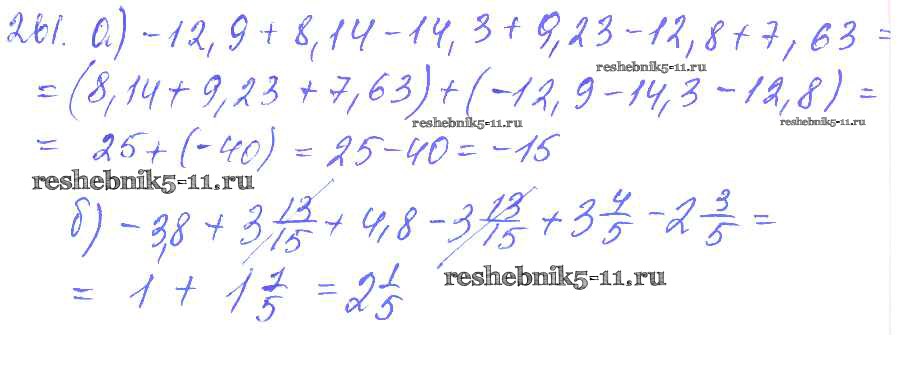 261. а) -12,9 + 8,14 - 14,3 + 9,23 - 12,8 + 7,63 =
reshebnik5-11.ru
= (8,14 + 9,23 + 7,63) + (-12,9 - 14,3 - 12,8) =
reshebnik5-11.ru reshebnik5-11.ru
= 25 + (-40) = 25 - 40 = -15
reshebnik5-11.ru
б) -3,8 + 3 13/15 + 4,8 - 3 13/15 + 3 4/5 - 2 3/5 =
reshebnik5-11.ru
= 1 + 1 1/5 = 2 1/5